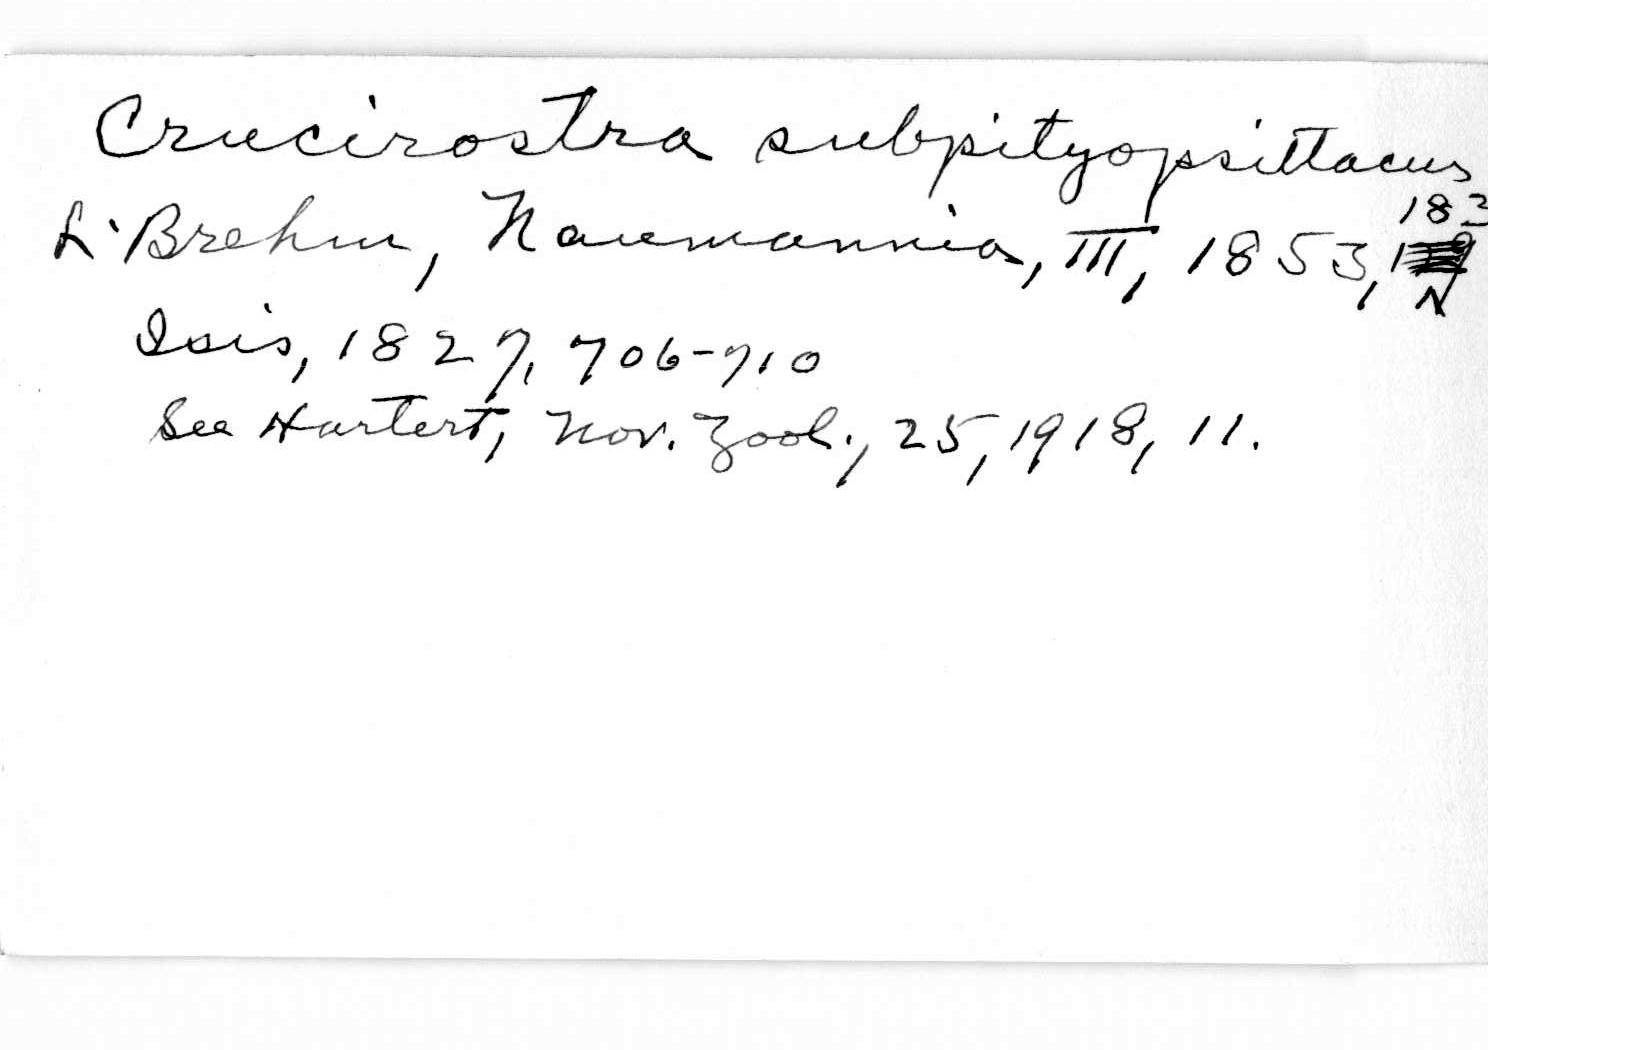 Crucirostra subpityopsittacus
L. Brehm, Naumannia, III, 1853, 183
N
Isis, 1827, 706-710
See Hartert, Nov. Zool., 25, 1918, 11.